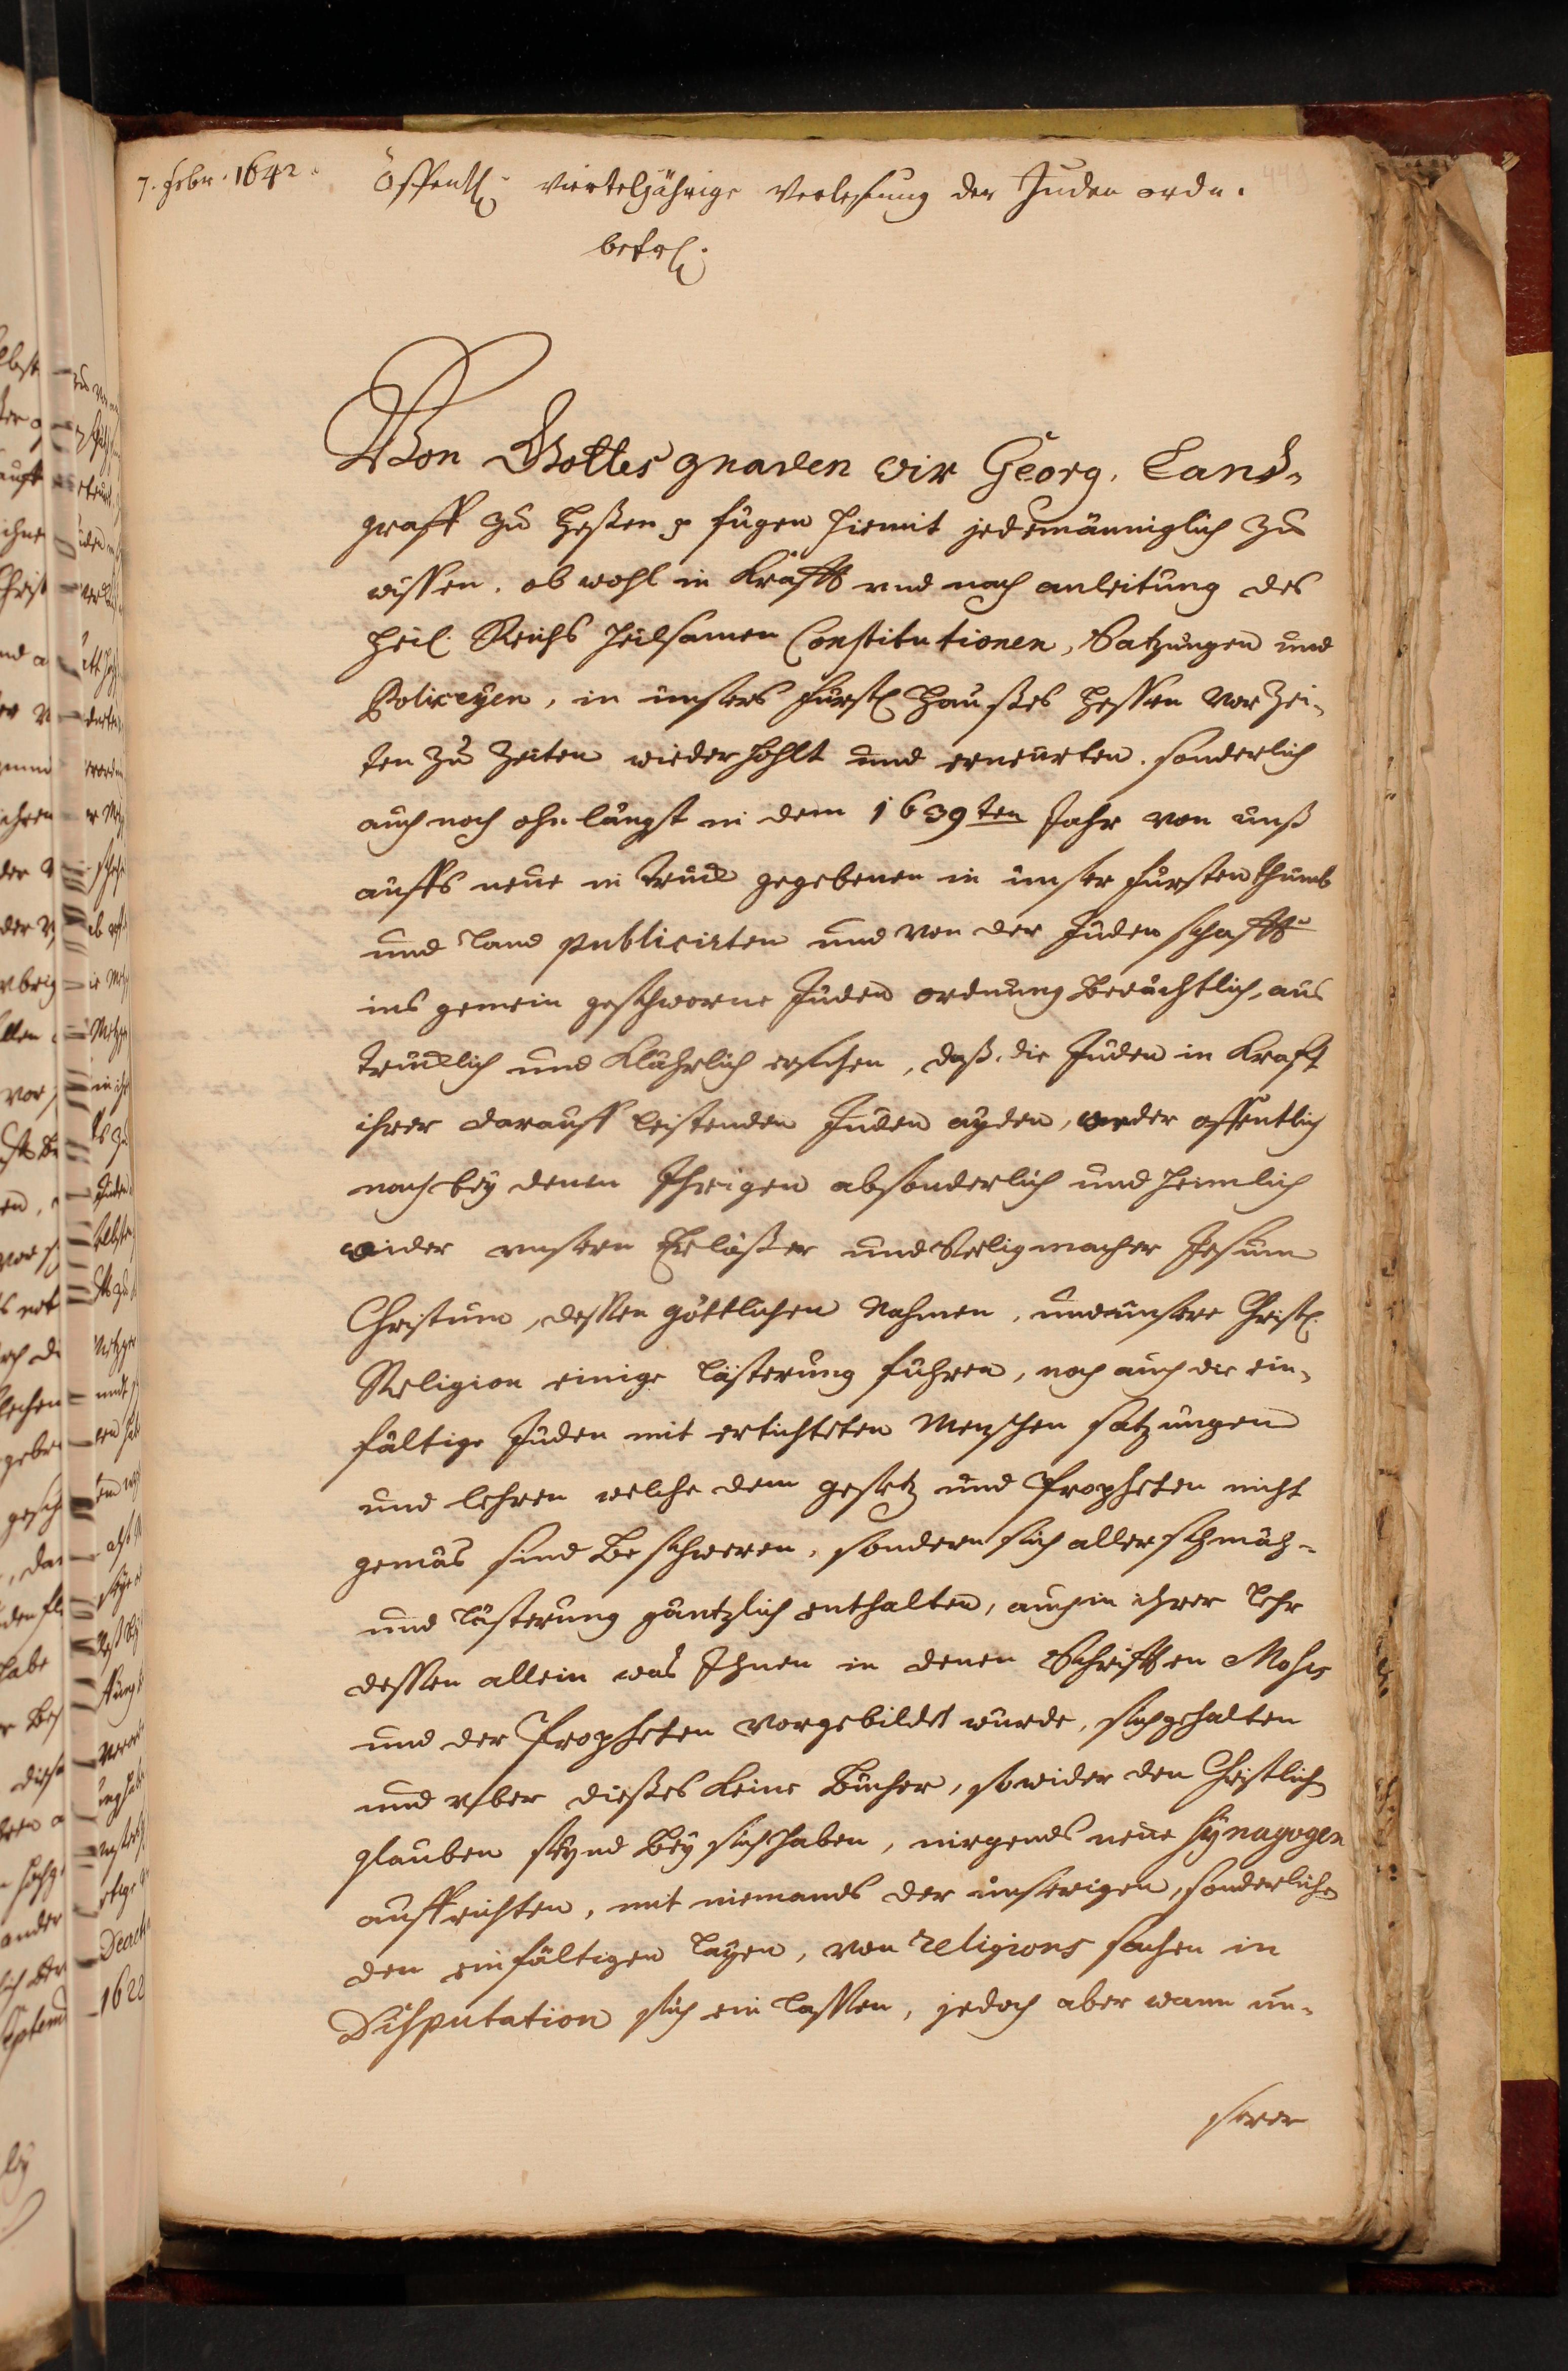 7. Febr. 1642.
Öffentl. vierteljährige Verlesung der Juden ordn.
betrl.
Von Gottes gnaden wir Georg, Land-
graff zu Heßen p fügen hiemit jedemänniglich zu
wissen. ob wohl in Krafft und nach anleitung des
Heil. Reichs heilsamen Constitutionen, Satzungen und
Policeyen, in unsers fürstl Haußes Hessen von Zei-
ten zu Zeiten wiederhohlt und erneurten. sonderlich
auch noch ohnlängst in dem 1639ten Jahr von unß
auffs neue in truck gegebenen in unser fürstenthumb
und Land publicirten und von der Judenschafft
ins gemein geschworne Juden ordnung bedächtlich, aus
trucklich und klährlich ersehen, daß die Juden in Kraft
ihrer darauff leistenden Juden ayden, weder offentlich
noch bey denen Ihrigen absonderlich und heimlich
wider unsern Erlößer und Seeligmacher Jesum
Christum, dessen göttlichen Nahmen, und unsere Christl.
Religion einige lästerung führen, noch auch die ein-
fältige Juden mit ertichteten Menschen satzungen
und lehren welche dem gesetz und Propheten nicht
gemäs sind beschweren, sondern sich aller schmäh-
und lästerung gäntzlich enthalten, auch in ihrer lehr
dessen allein was Ihnen in denen Schrifften Mosis
und der Propheten vorgebildet wurde, sich halten
und vber dießes keine Bücher, so wider den Christlich
glauben seynd bey sich haben, nirgends neue Synagogen
auffrichten, mit niemands der unserigen, sonderlich
den einfältigen layen, von religions sachen in
Disputation sich ein lassen, jedoch aber wann un-
serer